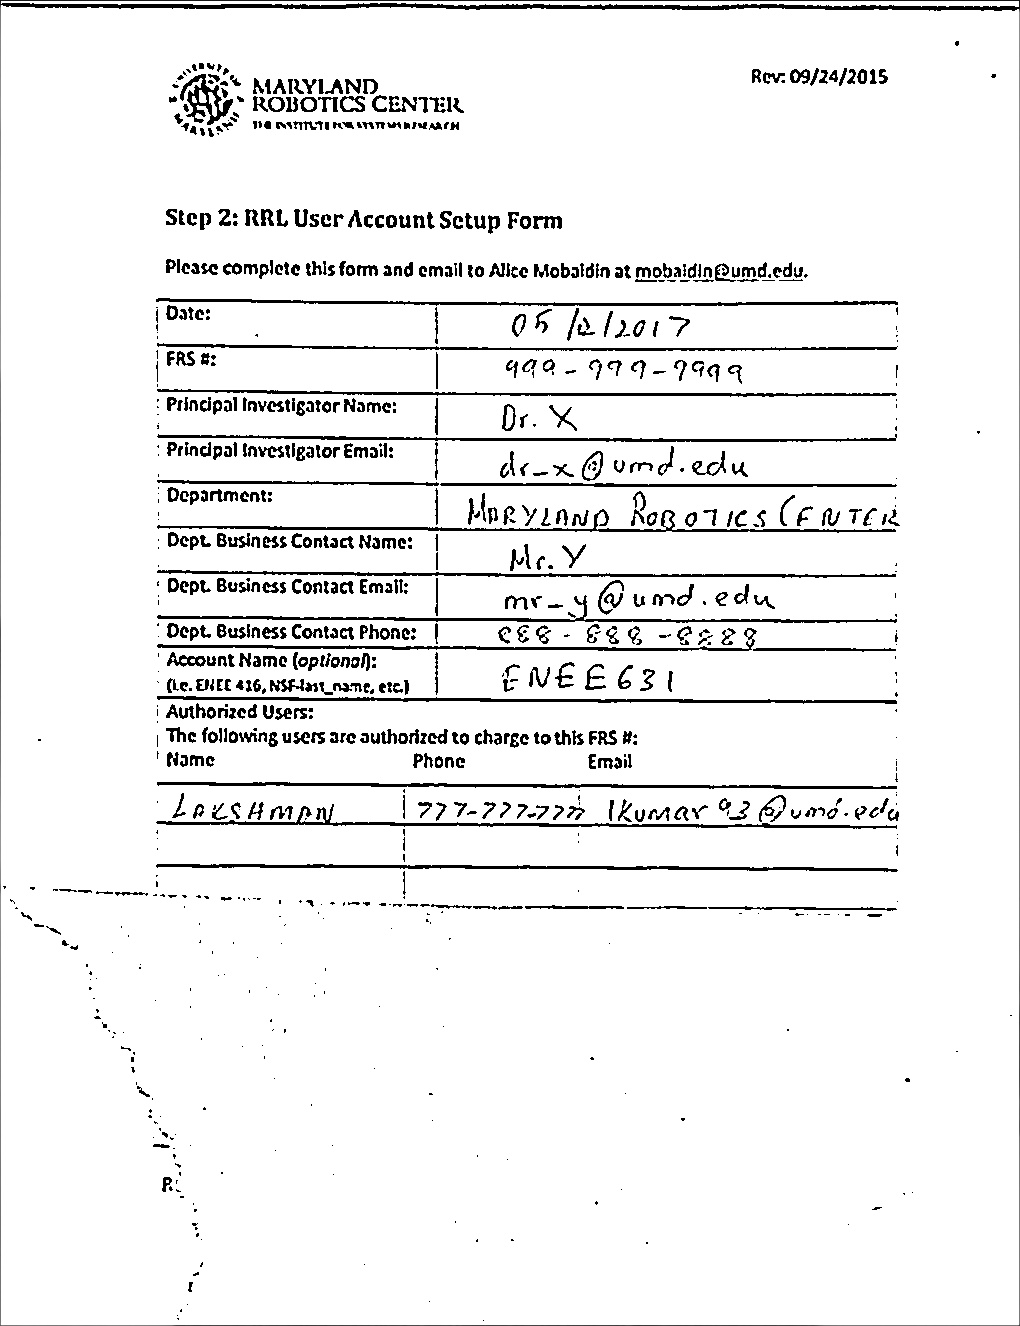 UNIVERSITY OF MARYLAND
MARYLAND
ROBOTICS CENTER
THE INSTITUTE FOR SYSTEMS RESEARCH
Rev: 09/24/2015
Step 2: RRL User Account Setup Form
Please complete this form and email to Alice Mobaidin at mobaidin@umd.edu.
Date: 05/12/2017
FRS #: 999-999-9999
Principal Investigator Name: Dr. X
Principal Investigator Email: dr_x@umd.edu
Department: MARYLAND ROBOTICS CENTER
Dept. Business Contact Name: Mr. Y
Dept. Business Contact Email: mr_y@umd.edu
Dept. Business Contact Phone: 888-888-8888
Account Name (optional): ENEE631
(i.e. ENEE 416, NSF-last_name, etc.)
Authorized Users:
The following users are authorized to charge to this FRS #:
Name Phone Email
LAKSHMAN 777-777-777 lkumar93@umd.edu
R